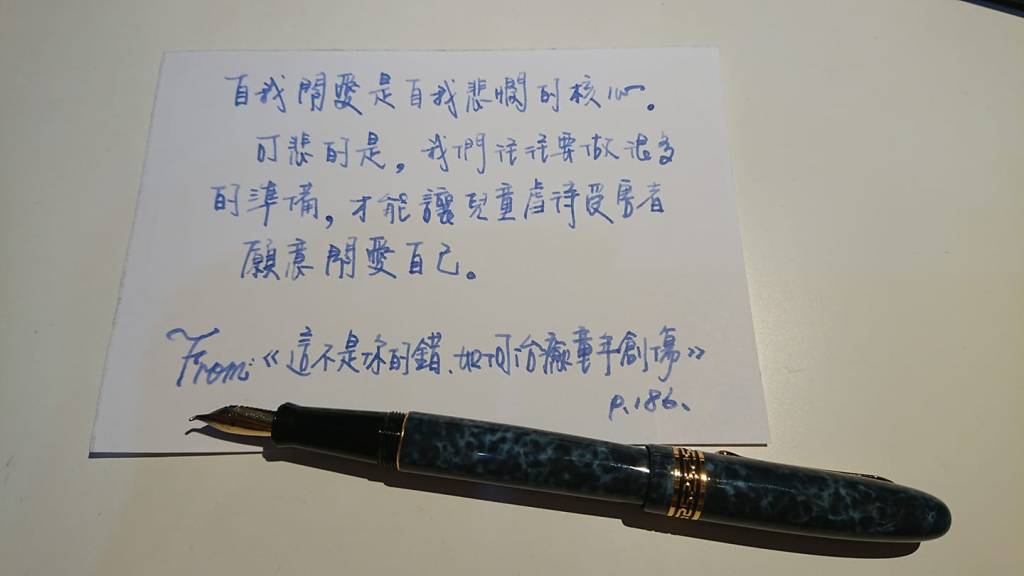 自我關愛是自我悲憫的核心。
可悲的是，我們往往要做很多
的準備，才能讓兒童虐待受害者
願意關愛自己。
From:《這不是你的錯．如何治癒童年創傷》
P.186.